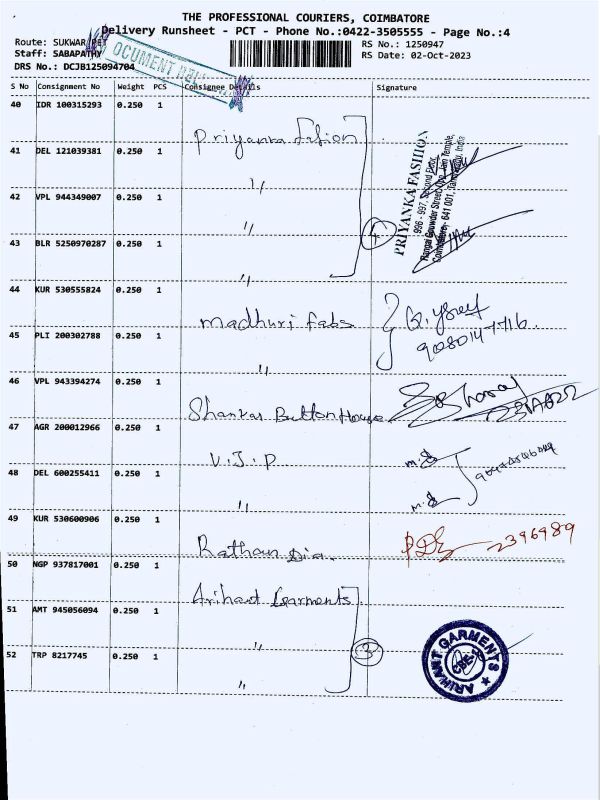 THE PROFESSIONAL COURIERS, COIMBATORE
Delivery Runsheet - PCT - Phone No.:0422-3505555 - Page No.:4
Route: SUKWAR PET
RS No.: 1250947
Staff: SABAPATHY
RS Date: 02-Oct-2023
DRS No.: DCJB125094704
OCUMENT
S No Consignment No Weight PCS Consignee Details Signature
40 IDR 100315293 0.250 1 Priyanka Fashion
41 DEL 121039381 0.250 1 "
42 VPL 944349007 0.250 1 "
43 BLR 5250970287 0.250 1 "
4
PRIYANKA FASHION
996 - 997, Second Floor,
Rangai Gowder Street, Opp. Jain Temple,
Coimbatore - 641 001, Tamilnadu, India
44 KUR 530555824 0.250 1 Madhuri Fabs
45 PLI 200302788 0.250 1 "
9080147716
46 VPL 943394274 0.250 1 Shankar Button House
47 AGR 200012966 0.250 1 V.J.P.
48 DEL 600255411 0.250 1 "
49 KUR 530600906 0.250 1 Rathan Dia
2396989
50 NGP 937817001 0.250 1 Arihant Garments
51 AMT 945056094 0.250 1 "
52 TRP 8217745 0.250 1 "
3
ARIHANT GARMENTS
CBE-1